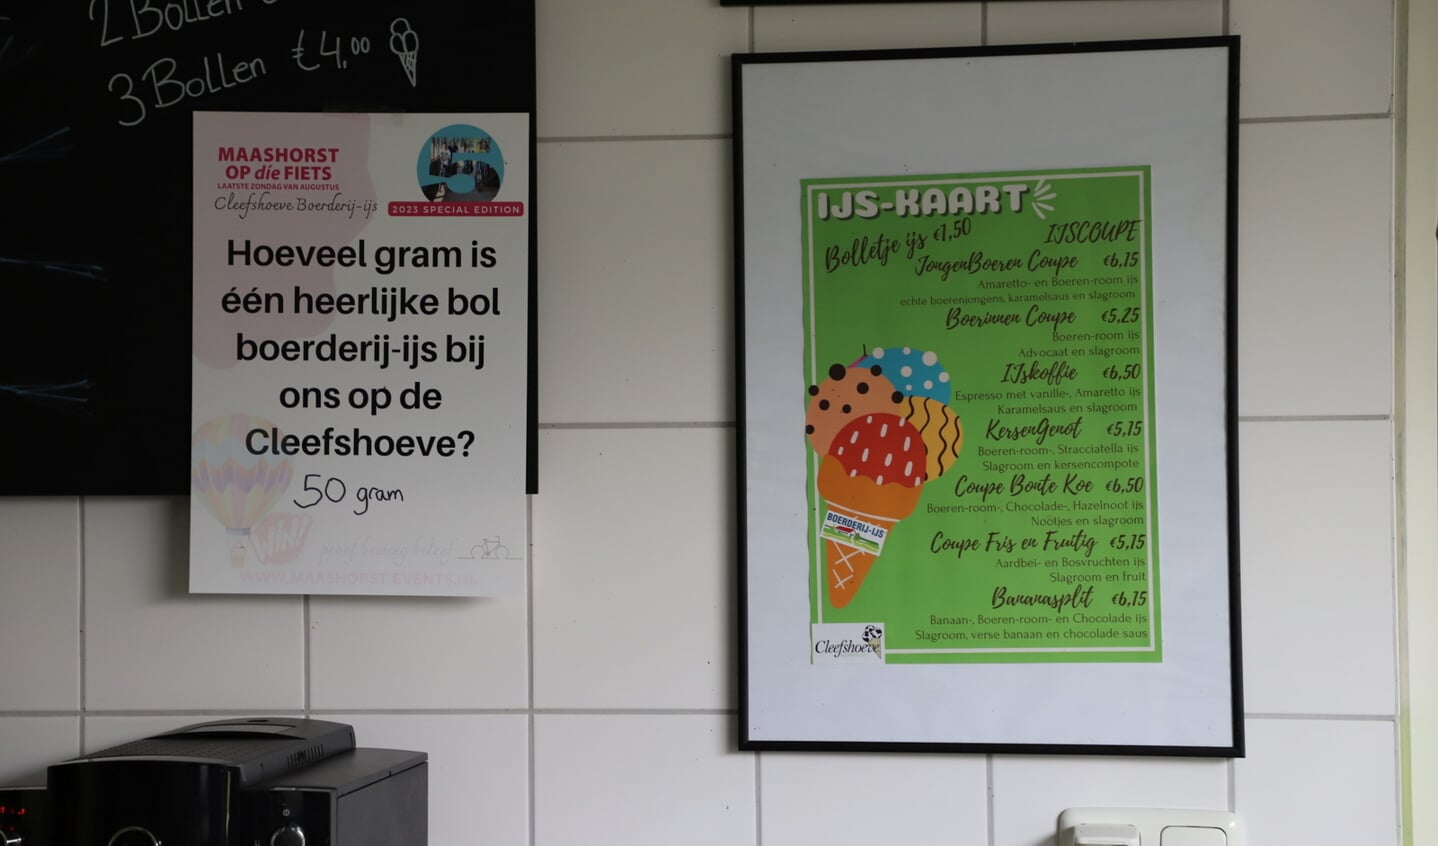 2 Bollen
3 Bollen €4,00
MAASHORST
OP die FIETS
LAATSTE ZONDAG VAN AUGUSTUS
Cleefshoeve Boerderij-ijs
5
2023 SPECIAL EDITION
Hoeveel gram is
één heerlijke bol
boerderij-ijs bij
ons op de
Cleefshoeve?
50 gram
WIN!
proef beweeg beleef
WWW.MAASHORST-EVENTS.NL
IJS-KAART
Bolletje ijs €1,50
IJSCOUPE
JongenBoeren Coupe €6,15
Amaretto- en Boeren-room ijs
echte boerenjongens, karamelsaus en slagroom
Boerinnen Coupe €5,25
Boeren-room ijs
Advocaat en slagroom
IJskoffie €6,50
Espresso met vanille-, Amaretto ijs
Karamelsaus en slagroom
KersenGenot €5,75
Boeren-room-, Stracciatella ijs
Slagroom en kersencompote
Coupe Bonte Koe €6,50
Boeren-room-, Chocolade-, Hazelnoot ijs
Nootjes en slagroom
Coupe Fris en Fruitig €5,75
Aardbei- en Bosvruchten ijs
Slagroom en fruit
Bananasplit €6,75
Banaan-, Boeren-room- en Chocolade ijs
Slagroom, verse banaan en chocolade saus
BOERDERIJ-IJS
Cleefshoeve